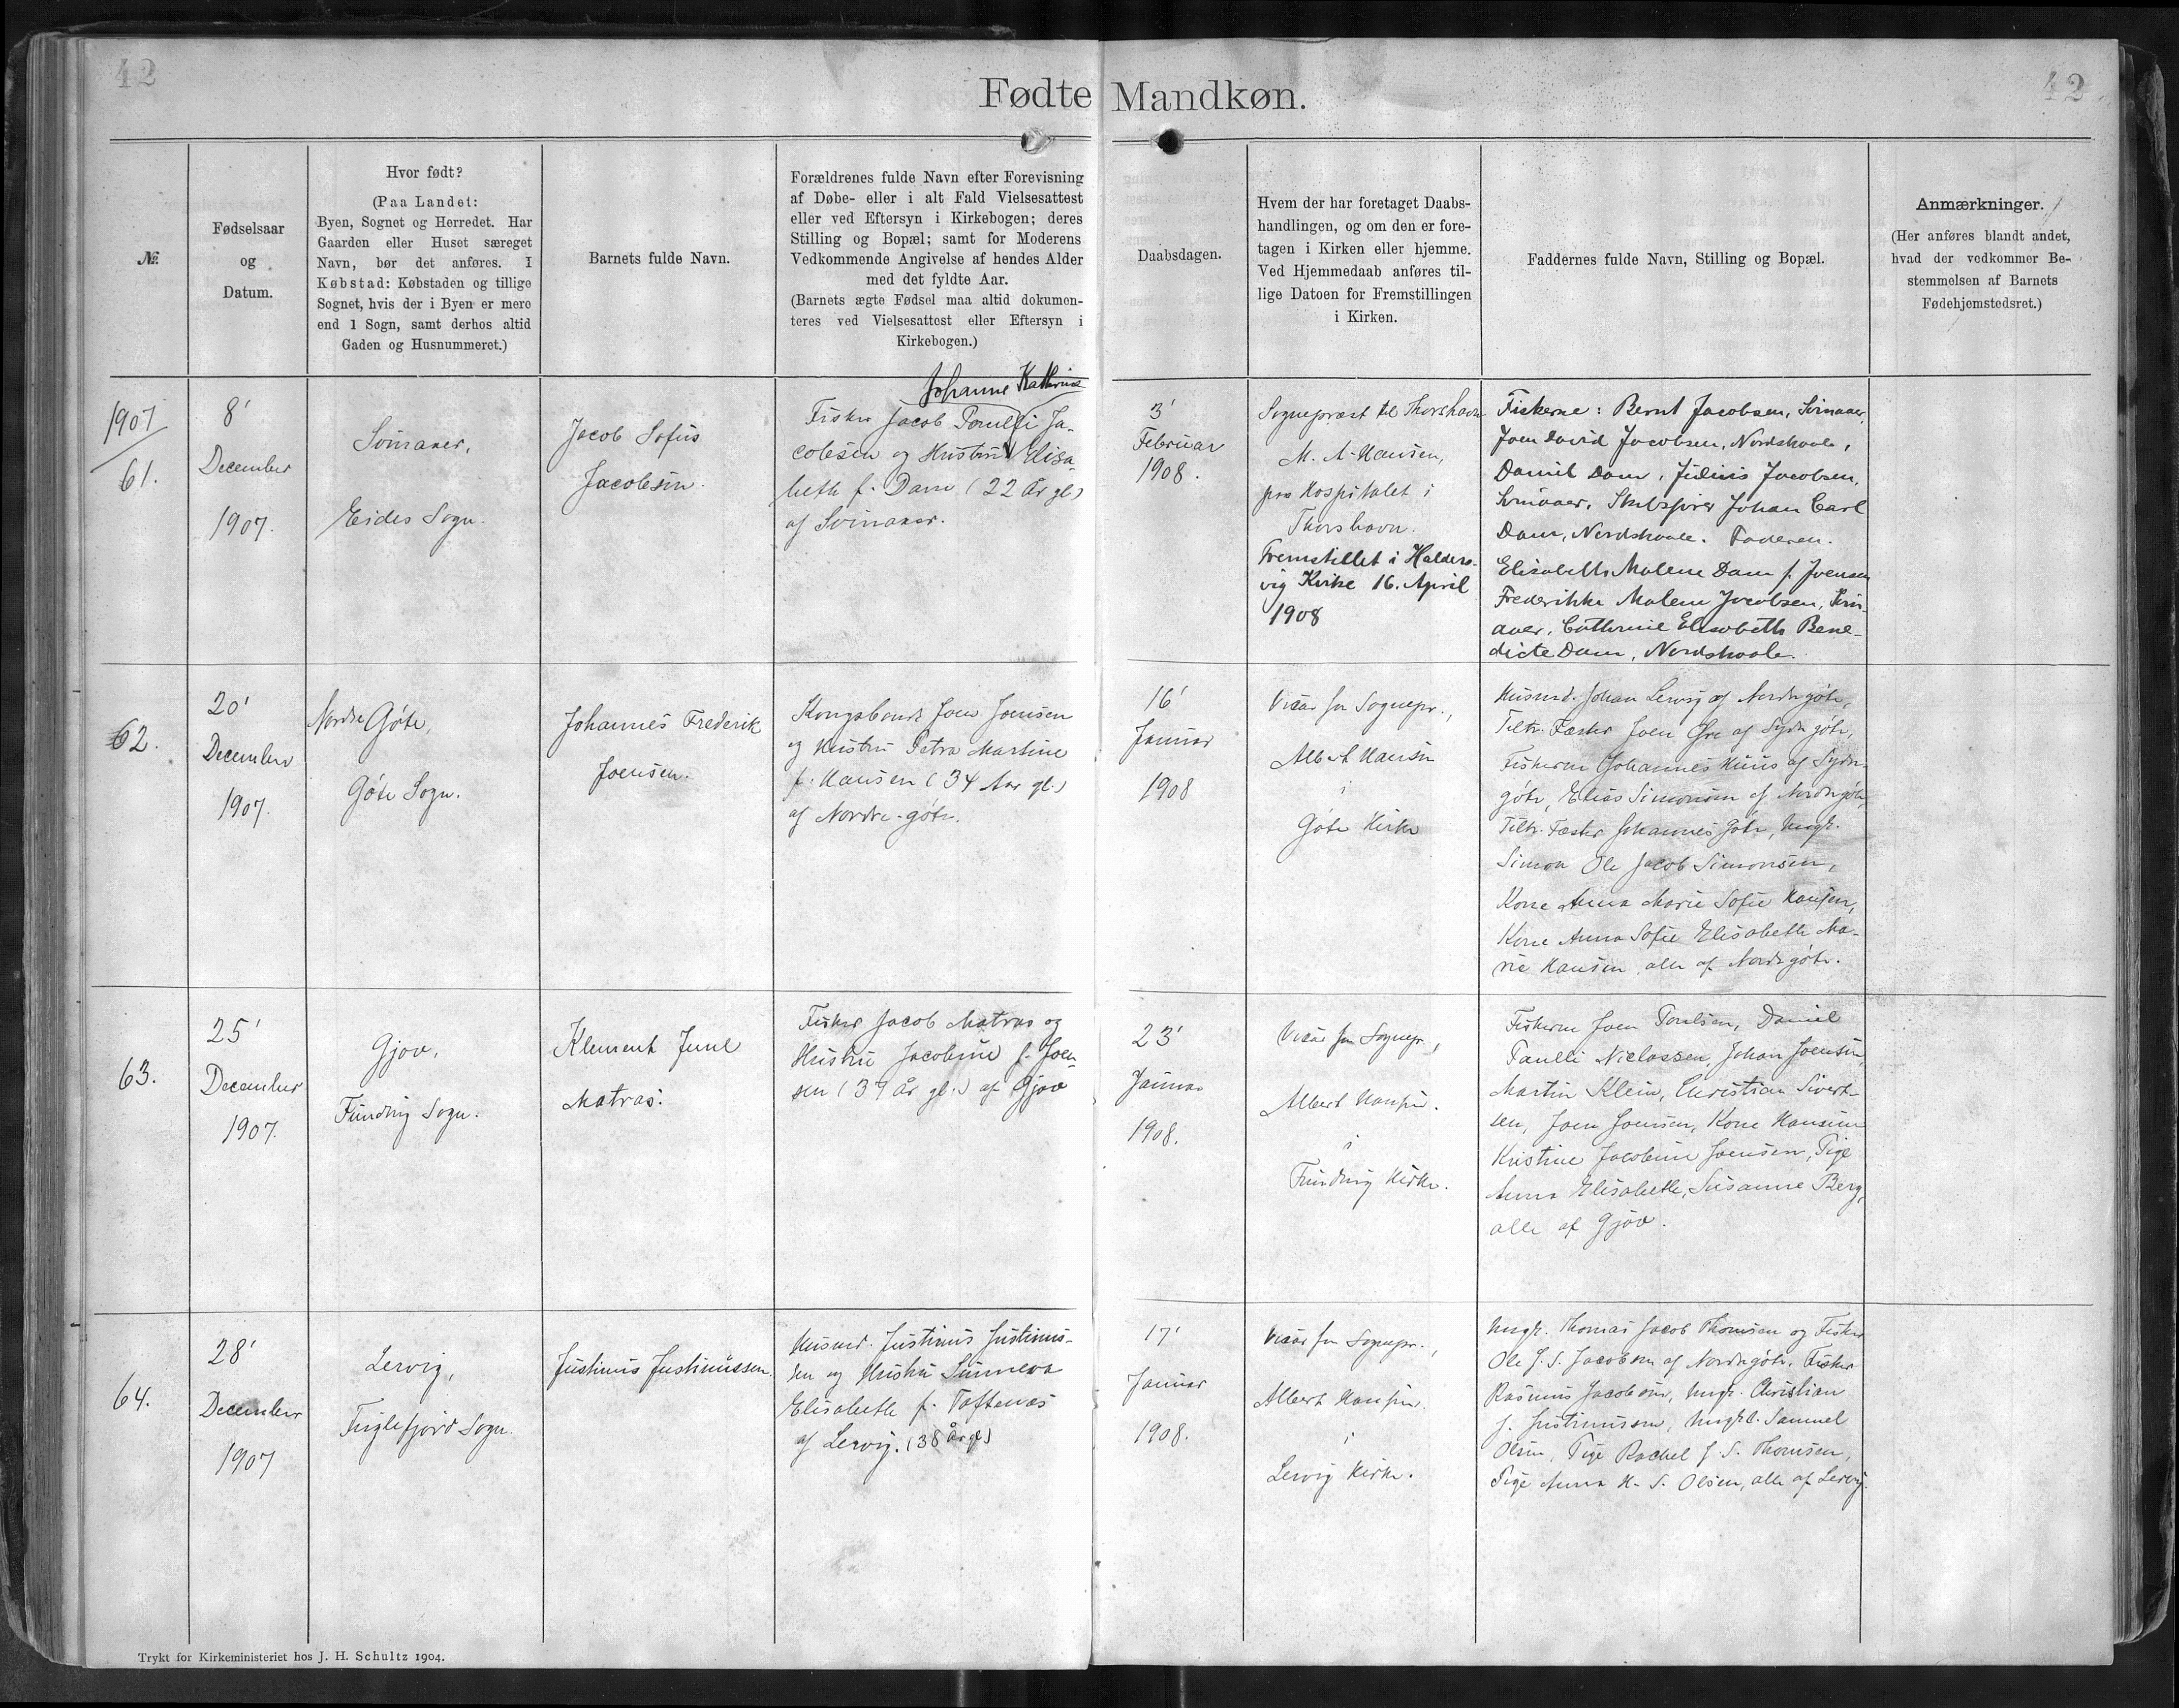 42
42
Fødte Mandkøn.
№
Fødselsaar
og
Datum.
Hvor født?
(Paa Landet:
Byen, Sognet og Herredet. Har
Gaarden eller Huset særeget
Navn, bør det anføres. I
Købstad: Købstaden og tillige
Sognet, hvis der i Byen er mere
end 1 Sogn, samt derhos altid
Gaden og Husnummeret.)
Barnets fulde Navn.
Forældrenes fulde Navn efter Forevisning
af Døbe- eller i alt Fald Vielsesattest
eller ved Eftersyn i Kirkebogen; deres
Stilling og Bopæl; samt for Moderens
Vedkommende Angivelse af hendes Alder
med det fyldte Aar.
(Barnets ægte Fødsel maa altid dokumen-
teres ved Vielsesattest eller Eftersyn i
Kirkebogen.)
Daabsdagen.
Hvem der har foretaget Daabs-
handlingen, og om den er fore-
tagen i Kirken eller hjemme.
Ved Hjemmedaab anføres til-
lige Datoen for Fremstillingen
i Kirken.
Faddernes fulde Navn, Stilling og Bopæl.
Anmærkninger.
(Her anføres blandt andet,
hvad der vedkommer Be-
stemmelsen af Barnets
Fødehjemstedsret.)
1907
61.
8'
December
1907.
Svinaaer,
Eides Sogn.
Jacob Sofus
Jacobsen.
Johanne Kathrine
Fisker Jacob Poulli Ja-
cobsen og Hustru Elisa-
beth f. Dam (22 År gl)
af Svinaaer.
3'
Februar
1908.
Sognepræst til Thorshavn
M. A. Hansen,
paa Hospitalet i
Thorshavn.
Fremstillet i Halders-
vig Kirke 16. April
1908
Fiskerne: Bernt Jacobsen, Svinaaer,
Joen David Jacobsen, Nordskaale,
Daniel Dam, Julius Jacobsen,
Svinaaer, Skibsfører Johan Carl
Dam, Nordskaale. Faderen.
Elisabeth Malene Dam f. Joensen
Frederikke Malene Jacobsen, Svin-
aaer, Cathrine Elisabeth Bene-
dicte Dam, Nordskaale.
62.
20'
December
1907.
Nordre Gøte,
Gøte Sogn.
Johannes Frederik
Joensen.
Kongsbonde Joen Joensen
og Hustru Petra Martine
f. Hansen (34 Aar gl.)
af Nordre-gøte.
16'
Januar
1908
Vicar for Sognepr.,
Albert Hansen
i
Gøte Kirke
Husmd. Johan Lervig af Nordregøte,
Tiltr. Fæster Joen Øre af Sydregøte,
Fiskerne Johannes Huus af Sydre-
gøte, Elias Simonsen af Nordregøte,
Tiltr. Fæster Johannes Gøte, Ungk.
Simon Ole Jacob Simonsen,
Kone Anna Marie Sofie Hansen,
Kone Anna Sofie Elisabeth Ma-
rie Hansen alle af Nordregøte.
63.
25'
December
1907.
Gjov,
Funding Sogn.
Klement Juul
Matras.
Fisker Jacob Matras og
Hustru Jacobine f. Joen-
sen (39 år gl.) af Gjov
23'
Januar
1908.
Vicar for Sognepr.,
Albert Hansen.
i
Funding Kirke.
Fiskerne Joen Poulsen, Daniel
Paulli Niclassen, Johan Joensen,
Martin Klein, Christian Sivert-
sen, Joen Joensen, Kone Hansine
Kristine Jacobine Joensen, Pige
Anna Elisabeth Susanne Berg,
alle af Gjov.
64.
28'
December
1907
Lervig,
Fuglefjord Sogn.
Justinus Justinussen.
Husmd. Justinus Justinus-
sen og Hustru Sunneva
Elisabeth f. Toftenæs
af Lervig. (38 År gl)
17'
Januar
1908.
Vicar for Sognepr.,
Albert Hansen.
i
Lervig Kirke.
Ungk. Thomas Jacob Thomsen og Fisker
Ole J. S. Jacobsen af Nordregøte, Fisker
Rasmus Jacobsen, Ungk. Christian
J. Justinussen, Ungk. Samuel
Olsen, Pige Rachel J. S. Thomsen,
Pige Anna H. S. Olsen, alle af Lervig.
Trykt for Kirkeministeriet hos J. H. Schultz 1904.